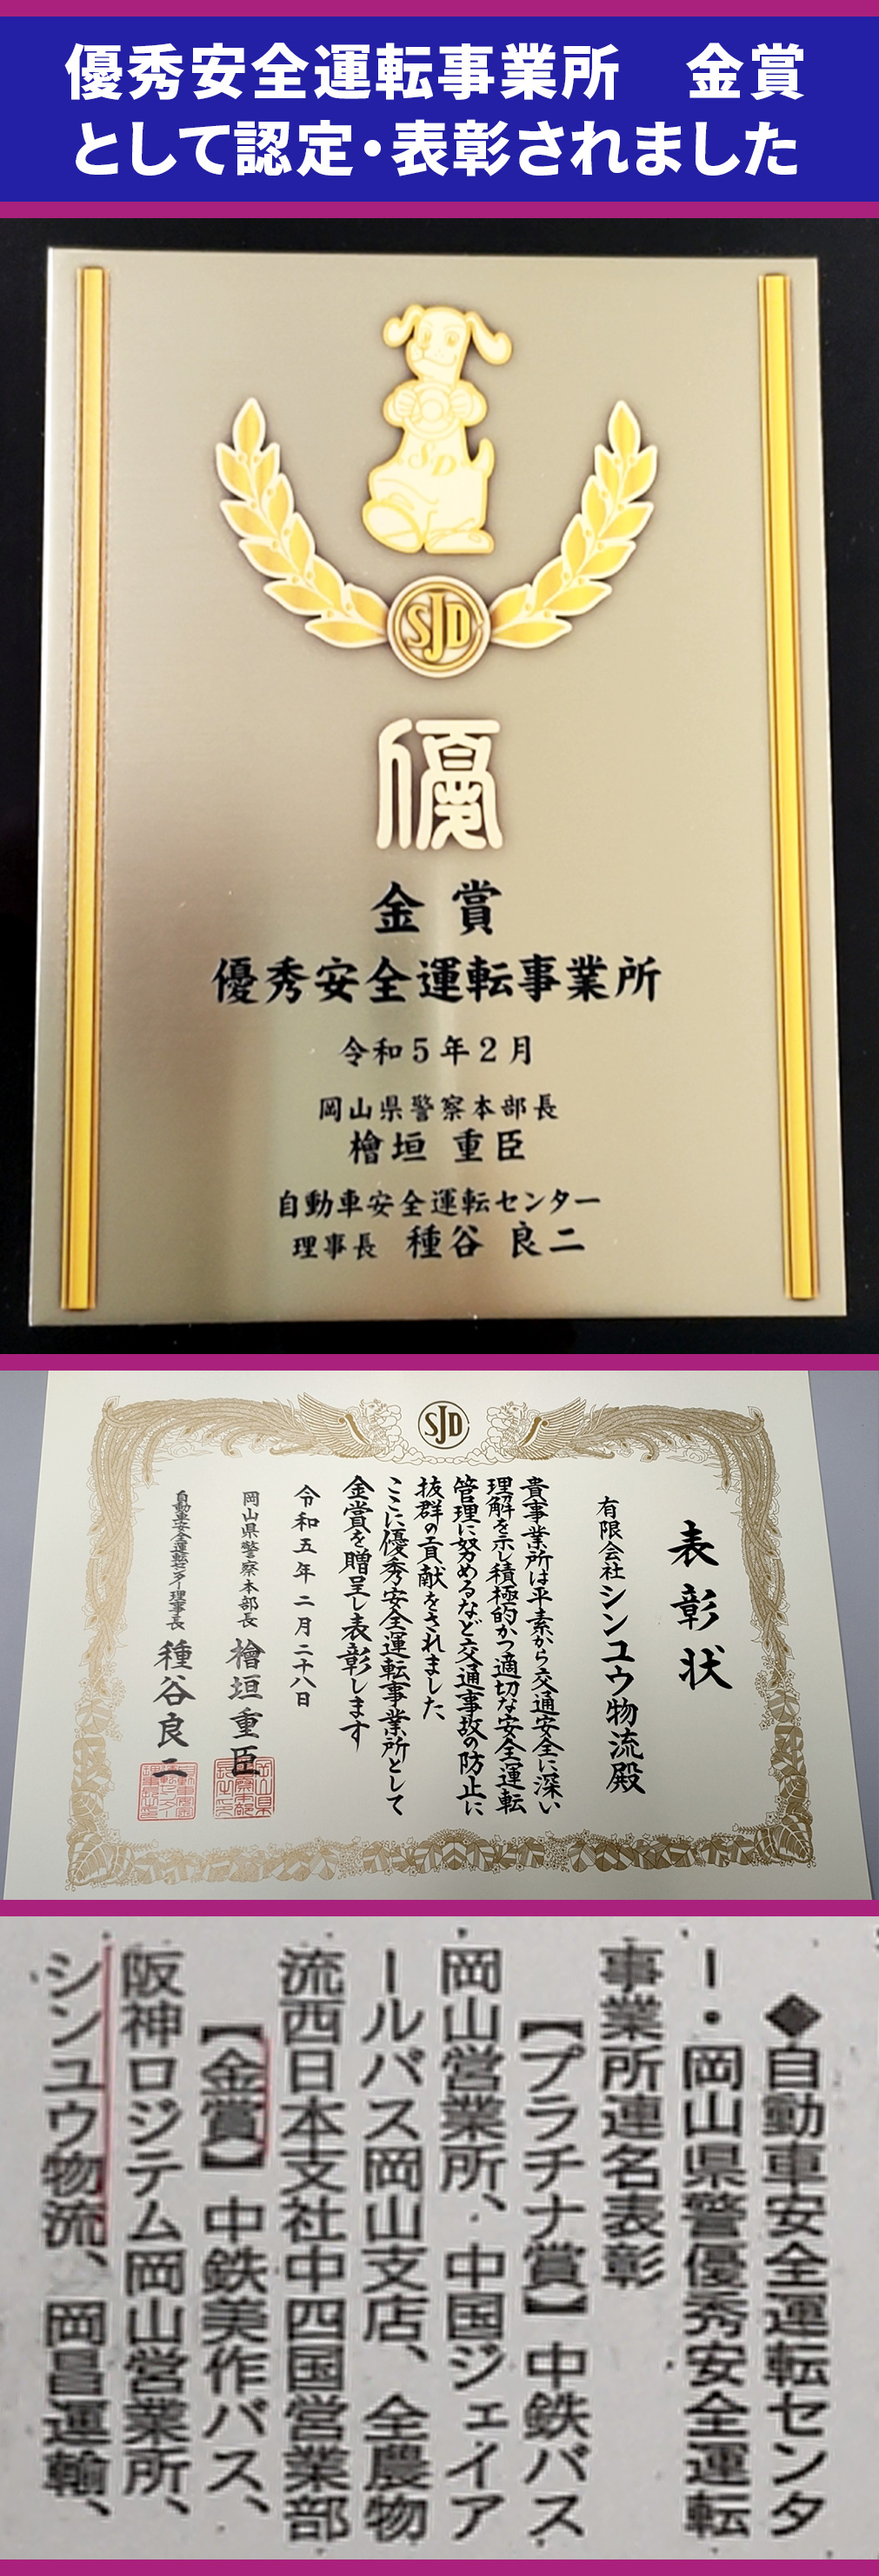 優秀安全運転事業所　金賞
として認定・表彰されました
SD
SJD
優
金賞
優秀安全運転事業所
令和5年2月
岡山県警察本部長
檜垣 重臣
自動車安全運転センター
理事長 種谷 良二
SJD
表彰状
有限会社シンユウ物流殿
貴事業所は平素から交通安全に深い
理解を示し積極的かつ適切な安全運転
管理に努めるなど交通事故の防止に
抜群の貢献をされました
ここに優秀安全運転事業所として
金賞を贈呈し表彰します
令和五年二月二十八日
岡山県警察本部長 檜垣重臣
自動車安全運転センター理事長 種谷良二
◆自動車安全運転センタ
ー・岡山県警優秀安全運転
事業所連名表彰
【プラチナ賞】中鉄バス
岡山営業所、中国ジェイア
ールバス岡山支店、全農物
流西日本支社中四国営業部
【金賞】中鉄美作バス、
阪神ロジテム岡山営業所、
シンユウ物流、岡昌運輸、